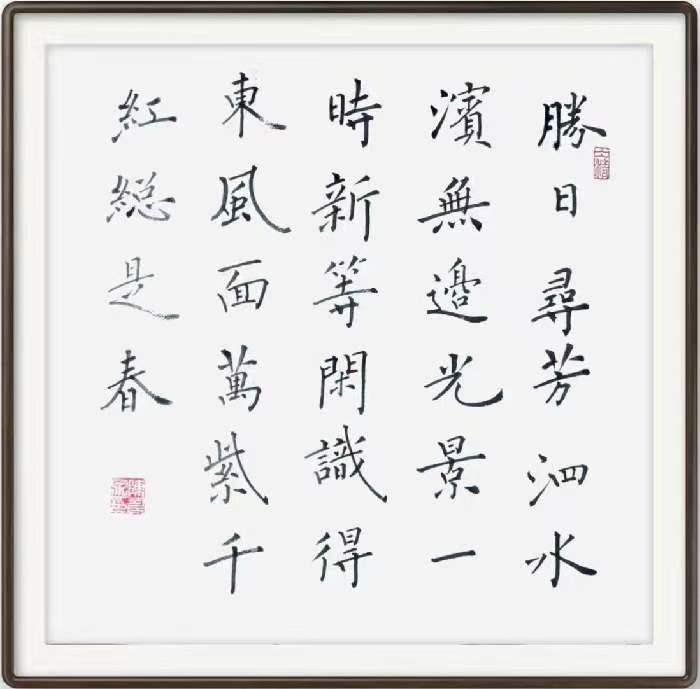 勝日尋芳泗水
濱無邊光景一
時新等閑識得
東風面萬紫千
紅総是春